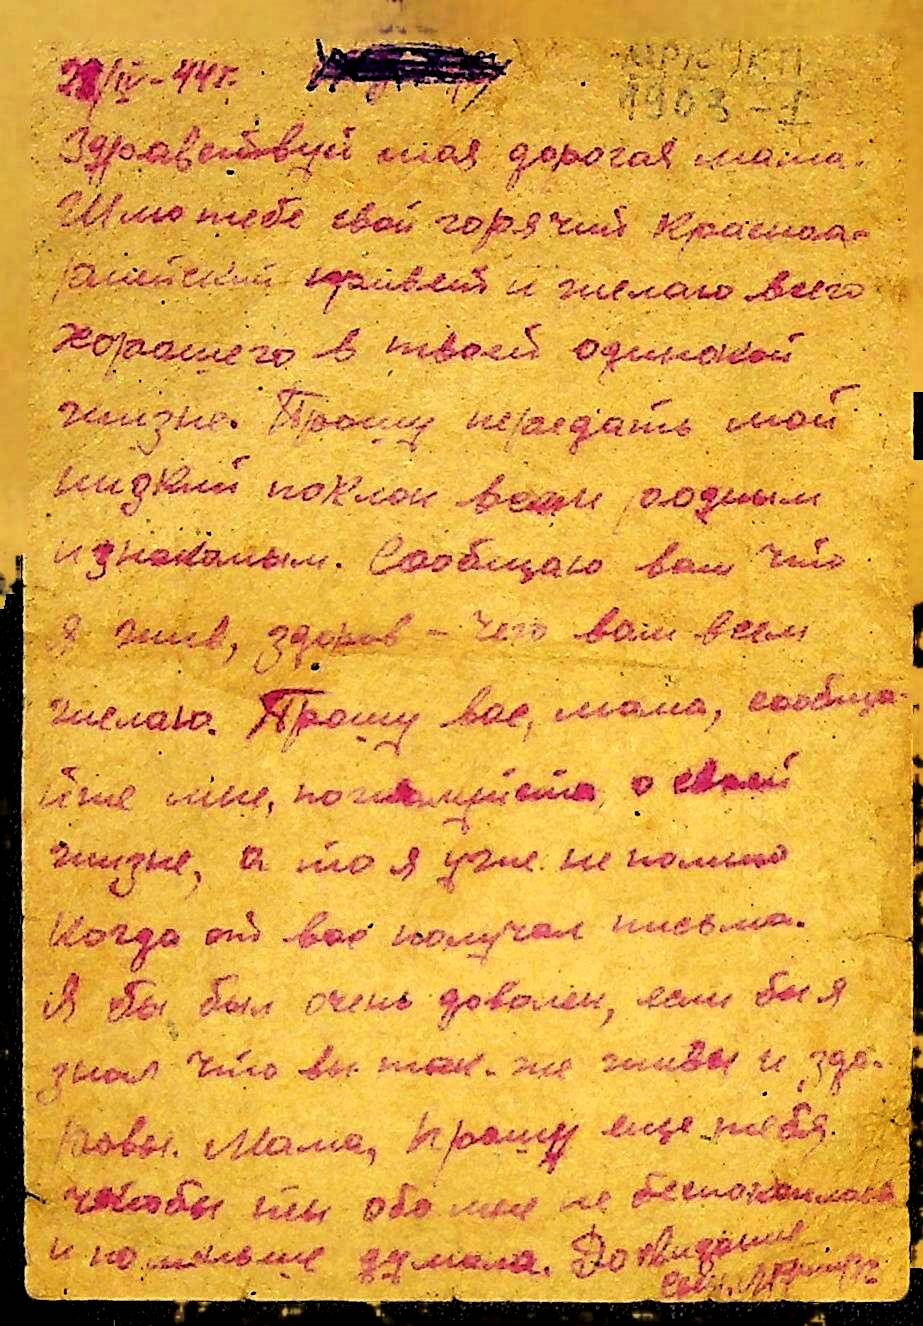 /IV-44г.
1903-1
Здравствуй моя дорогая мама.
Шлю тебе свой горячий Красноа-
рмейский привет и желаю всего
хорошего в твоей одинокой
жизне. Прошу передать мой
низкий поклон всем родным
и знакомым. Сообщаю вам что
я жив, здоров - чего вам всем
желаю. Прошу вас, мама, сообща-
йте мне, пожалуйста, о своей
жизне, а то я уже не помню
когда от вас получал письма.
Я бы был очень доволен, если бы я
знал что вы так-же живы и здо-
ровы. Мама, прошу еще тебя
чтобы ты обо мне не беспокоилась
и по меньше думала. До свидания